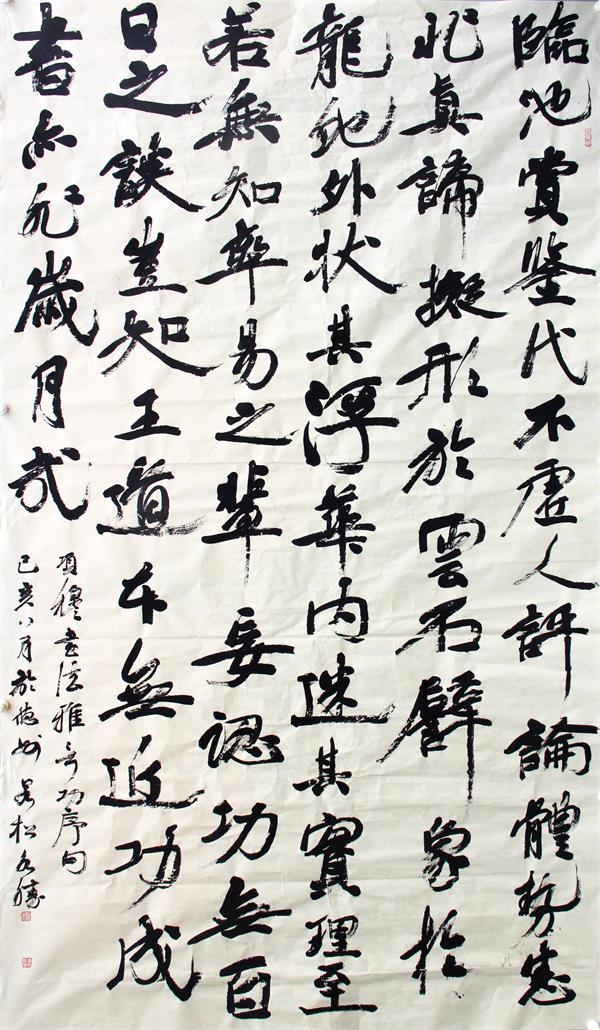 臨池賞鑒代不虛人評論體勢悉
非真諦擬形於雲石譬象於
龍蛇外状其浮華内迷其實理至
若無知率易之輩妄認功無百
日之談豈知王道本無近功成
書亦非歲月哉
項穆書法雅言功序句
己亥八月於德州